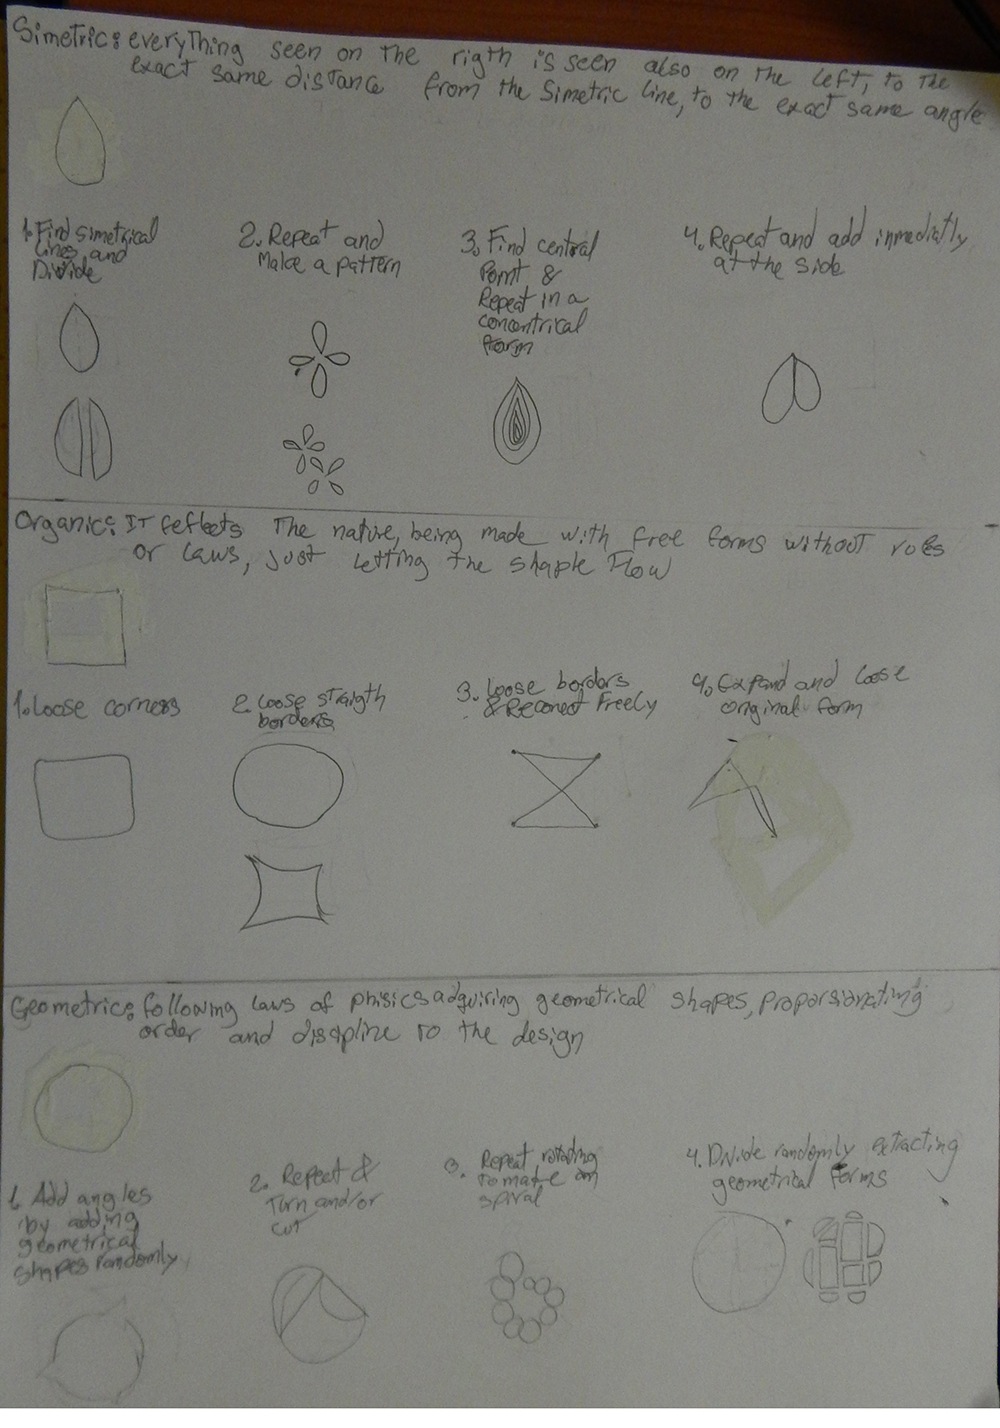 Simetric: everything seen on the rigth is seen also on the left, to the
exact same distance from the simetric line, to the exact same angle
1. Find simetrical
lines and
Divide
2. Repeat and
Make a pattern
3. Find central
Point &
Repeat in a
concentrical
Form
4. Repeat and add inmediatly
at the side
Organic: IT reflects The nature, being made with free forms without rules
or laws, just letting the shaple Flow
1. Loose corners
2. Loose straigth
borders
3. Loose borders
& Reconect Freely
4. Expand and loose
original form
Geometric: following laws of phisics adquiring geometrical shapes, proporsionating
order and discipline to the design
1. Add angles
by adding
geometrical
shapes randomly
2. Repeat &
Turn and/or
cut
3. Repeat rotating
to make an
spiral
4. Divide randomly extracting
geometrical forms